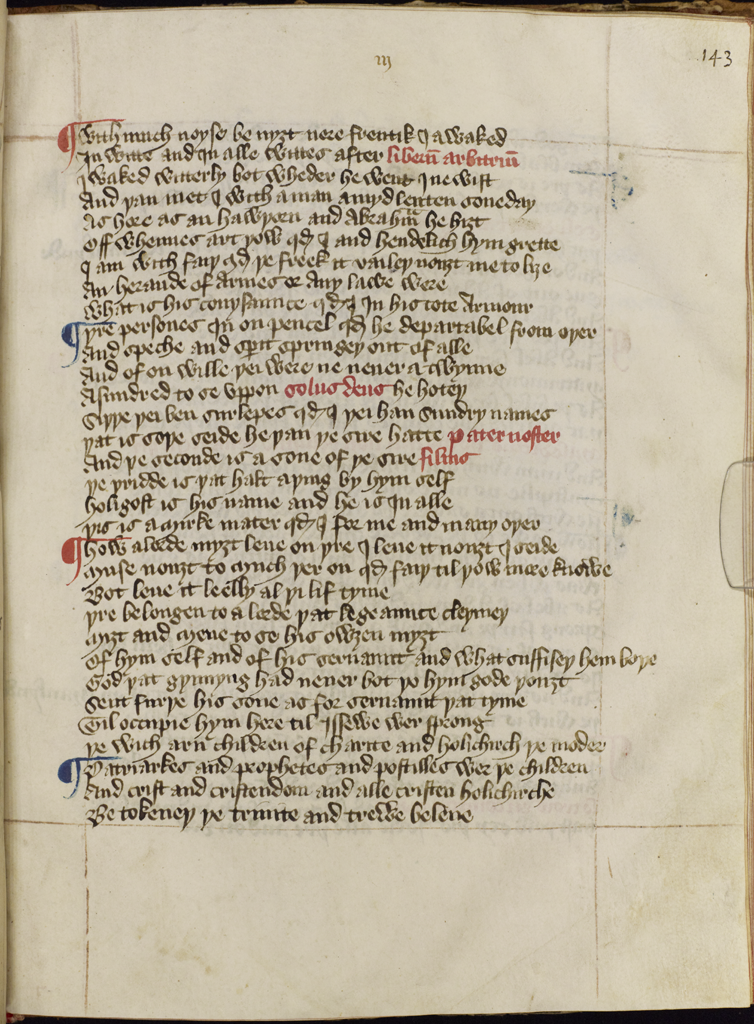 iij
143
¶ With much noyse be nyȝt nere frentik I awaked
In witte and In alle wittes after liberū arbitriū
I waked witterly bot wheder he went I ne wist
And þan met I with a man amyd lenten soneday
As hore as an hawþorn and Abrahā he hiȝt
Off whennes art þow qd I and hendelich hym grette
I am with faiþ qd þe freek it valleþ nouȝt me to lye
An heraude of armes or Any lawe were
What is his conysaunce qd I In his cote Armour
¶ þre persones In on pencel qd he departabel from oþer
And speche and spirit springeþ out of alle
And of on wille þei were ne neuer a twynne
Asundred to se vppon solus deus he hoteþ
Siþþe þei ben surlepes qd I þei han sundry names
þat is soþe seide he þan þe sire hatte Pater noster
And þe seconde is a sone of þe sire filius
þe þridde is þat halt aþing by hym self
holigost is his name and he is In alle
þis is a myrke mater qd I for me and many oþer
¶ How a lorde myȝt leue on þre I leue it nouȝt I seide
Muse nouȝt to mych þer on qd faiþ til þow more knowe
Bot leue it leelly al þi lif tyme
þre belongen to a lorde þat legeaunce cleymeþ
Myȝt and mene to se his owȝen myȝt
Of hym self and of his seruaunt and what suffiseþ hem boþe
God þat gynnyng had neuer bot þo hym gode þouȝt
Sent furþe his sone as for seruaunt þat tyme
Til occupie hym here til Issewe wer sprong
þe with arn children of charite and holichirch þe moder
¶ Patriarkes and prophetes and postilles wer þe children
And crist and cristendom and alle cristen holichirche
Be tokeneþ þe trinite and trewe beleue